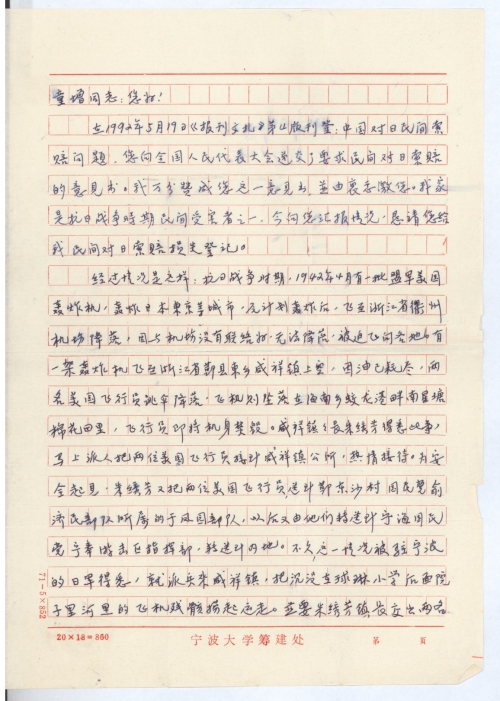 童增同志：您好！
在1992年5月19日《报刊文摘》第4版刊登：中国对日民间索
赔问题，您向全国人民代表大会递交了要求民间对日索赔
的意见书。我万分赞成您这一意见书，并由衷感激您。我家
是抗日战争时期民间受害者之一，今向您汇报情况，恳请您给
我民间对日索赔损失登记。
经过情况是这样：抗日战争时期，1942年4月有一批盟军美国
轰炸机，轰炸日本东京等城市，原计划轰炸后，飞至浙江省衢州
机场降落，因与机场没有联络好，无法降落，被迫飞向各地。有
一架轰炸机飞至浙江省鄞县东乡咸祥镇上空，因油已耗尽，两
名美国飞行员跳伞降落，飞机则坠落在海南乡蛟龙港畔南星塘
棉花田里，飞行员即将机身焚毁。咸祥镇镇长朱绣芳得悉此事，
马上派人把两位美国飞行员接到咸祥镇公所，热情接待。为安
全起见，朱绣芳又把两位美国飞行员送到鄞东沙村国民党俞
济民部队所属的于凤园部队，以后又由他们转送到宁海国民
党宁奉游击区指挥部，转送到内地。不久这一情况被驻宁波
的日军得悉，就派兵来咸祥镇，把沉没在球琳小学后面院
子里河里的飞机残骸捞起运走。并要朱绣芳镇长交出两名
71-5×852
20×18=360
宁波大学筹建处
第 页